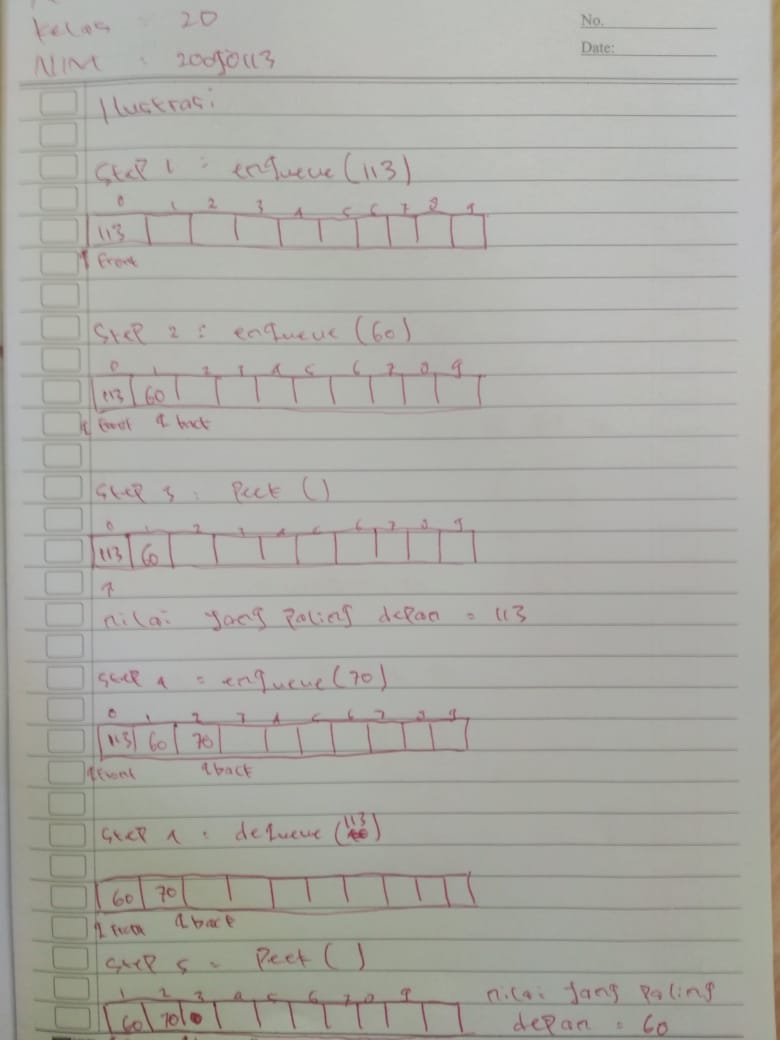 Kelas : 20
NIM : 20050113
No.
Date:
Ilustrasi
Step 1 : enqueue (113)
0 1 2 3 4 5 6 7 8 9
113
Front
Step 2 : enqueue (60)
0 1 2 3 4 5 6 7 8 9
113 60
Front back
Step 3 : Peek ()
0 1 2 3 4 5 6 7 8 9
113 60
nilai yang paling depan = 113
Step 4 : enqueue (70)
0 1 2 3 4 5 6 7 8 9
113 60 70
Front back
Step 4 : dequeue (113)
60 70
Front back
Step 5 : Peek ()
1 2 3 4 5 6 7 8 9
60 70
nilai yang paling
depan = 60